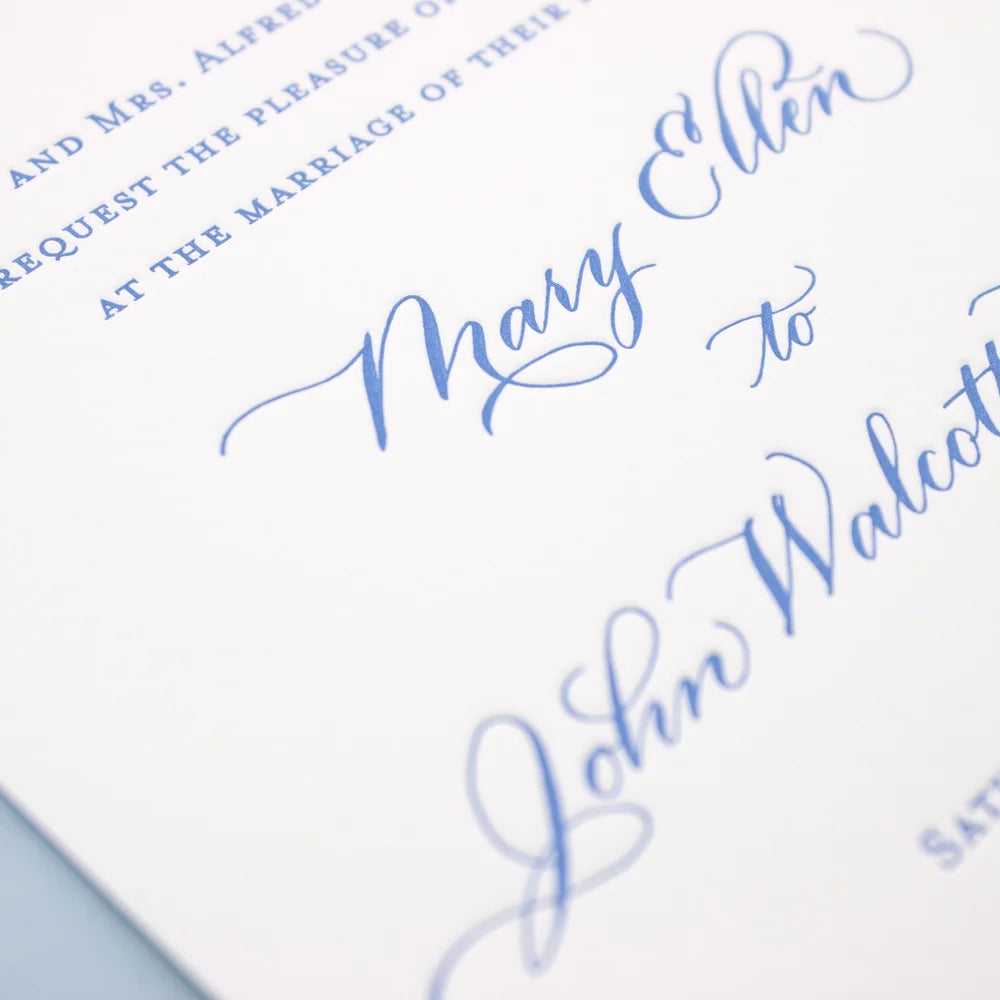 AND MRS. ALFRED
REQUEST THE PLEASURE
AT THE MARRIAGE OF THEIR
Mary Ellen
to
John Walcott